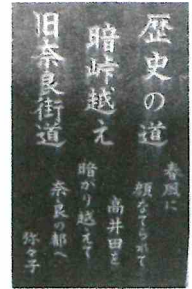 歴史の道
暗峠越え
旧奈良街道
春風に
顔なでられて
高井田を
暗がり越えて
奈良の都へ
弥々子